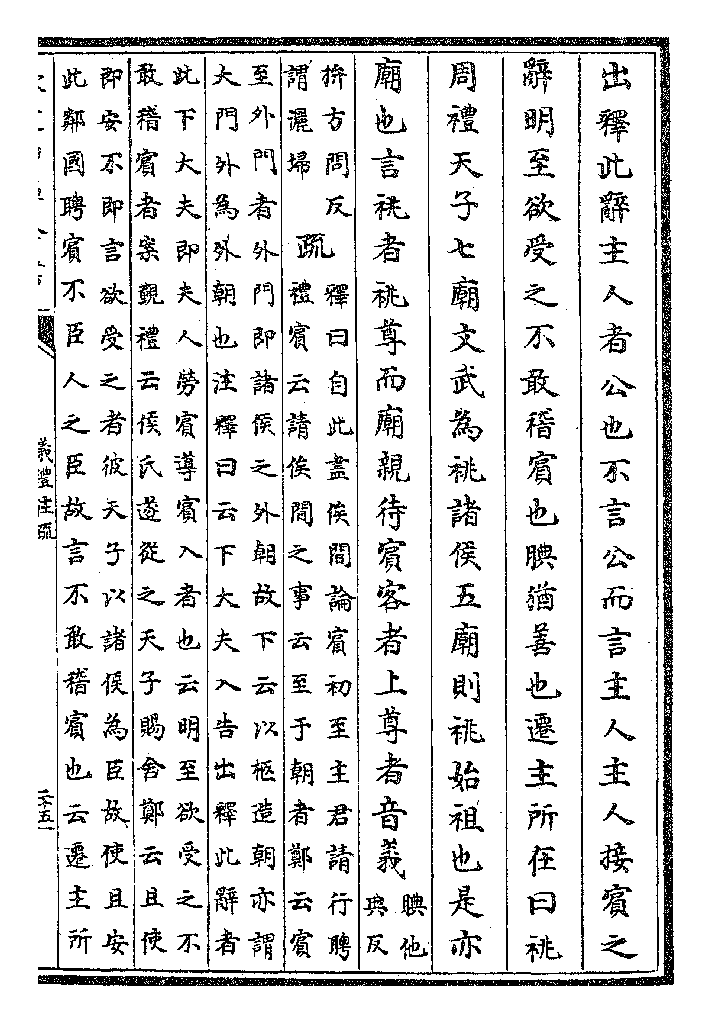 出釋此辭主人者公也不言公而言主人主人接賓之
辭明至欲受之不敢稽賓也腆猶善也遷主所在曰祧
周禮天子七廟文武為祧諸侯五廟則祧始祖也是亦
廟也言祧者祧尊而廟親待賓客者上尊者音義
腆他
典反
拚方問反
謂灑埽
疏
釋曰自此盡俟間論賓初至主君請行聘
禮賓云請俟間之事云至于朝者鄭云賓
至外門者外門即諸侯之外朝故下云以柩造朝亦謂
大門外為外朝也注釋曰云下大夫入告出釋此辭者
此下大夫即夫人勞賓導賓入者也云明至欲受之不
敢稽賓者案覲禮云侯氏遂從之天子賜舍鄭云且使
即安不即言欲受之者彼天子以諸侯為臣故使且安
此鄰國聘賓不臣人之臣故言不敢稽賓也云遷主所
儀禮注疏